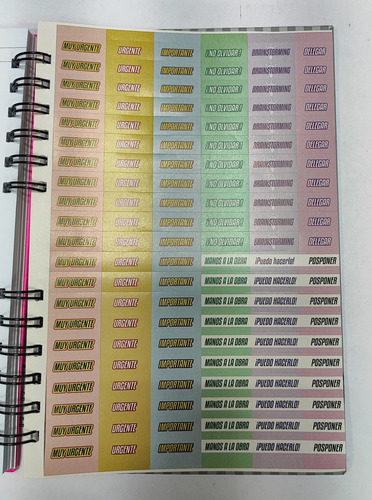 MUY URGENTE URGENTE IMPORTANTE ¡NO OLVIDAR! BRAINSTORMING DELEGAR
MUY URGENTE URGENTE IMPORTANTE ¡NO OLVIDAR! BRAINSTORMING DELEGAR
MUY URGENTE URGENTE IMPORTANTE ¡NO OLVIDAR! BRAINSTORMING DELEGAR
MUY URGENTE URGENTE IMPORTANTE ¡NO OLVIDAR! BRAINSTORMING DELEGAR
MUY URGENTE URGENTE IMPORTANTE ¡NO OLVIDAR! BRAINSTORMING DELEGAR
MUY URGENTE URGENTE IMPORTANTE ¡NO OLVIDAR! BRAINSTORMING DELEGAR
MUY URGENTE URGENTE IMPORTANTE ¡NO OLVIDAR! BRAINSTORMING DELEGAR
MUY URGENTE URGENTE IMPORTANTE ¡NO OLVIDAR! BRAINSTORMING DELEGAR
MUY URGENTE URGENTE IMPORTANTE ¡NO OLVIDAR! BRAINSTORMING DELEGAR
MUY URGENTE URGENTE IMPORTANTE ¡NO OLVIDAR! BRAINSTORMING DELEGAR
MUY URGENTE URGENTE IMPORTANTE ¡NO OLVIDAR! BRAINSTORMING DELEGAR
MUY URGENTE URGENTE IMPORTANTE MANOS A LA OBRA ¡Puedo hacerlo! POSPONER
MUY URGENTE URGENTE IMPORTANTE MANOS A LA OBRA ¡PUEDO HACERLO! POSPONER
MUY URGENTE URGENTE IMPORTANTE MANOS A LA OBRA ¡PUEDO HACERLO! POSPONER
MUY URGENTE URGENTE IMPORTANTE MANOS A LA OBRA ¡PUEDO HACERLO! POSPONER
MUY URGENTE URGENTE IMPORTANTE MANOS A LA OBRA ¡PUEDO HACERLO! POSPONER
MUY URGENTE URGENTE IMPORTANTE MANOS A LA OBRA ¡PUEDO HACERLO! POSPONER
MUY URGENTE URGENTE IMPORTANTE MANOS A LA OBRA ¡PUEDO HACERLO! POSPONER
MUY URGENTE URGENTE IMPORTANTE MANOS A LA OBRA ¡PUEDO HACERLO! POSPONER
MUY URGENTE URGENTE IMPORTANTE MANOS A LA OBRA ¡PUEDO HACERLO! POSPONER
MUY URGENTE URGENTE IMPORTANTE MANOS A LA OBRA ¡PUEDO HACERLO! POSPONER